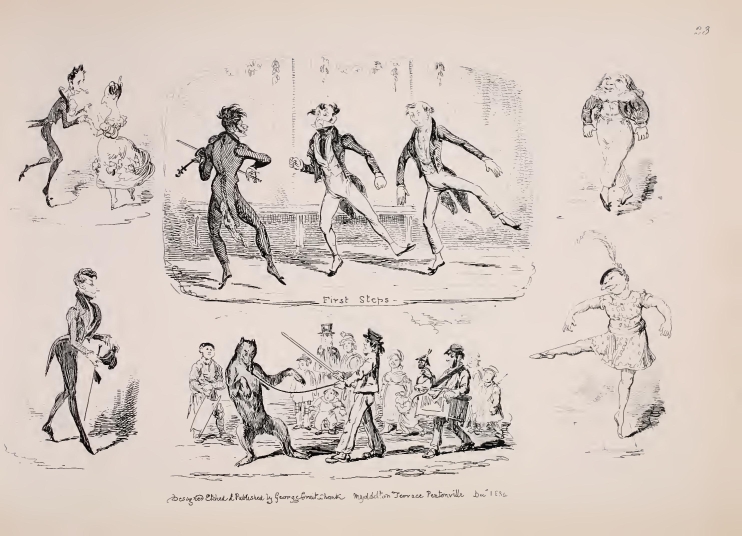 23
First Steps
Designed Etched & Published by George Cruikshank Myddelton Terrace Pentonville Decr 1836